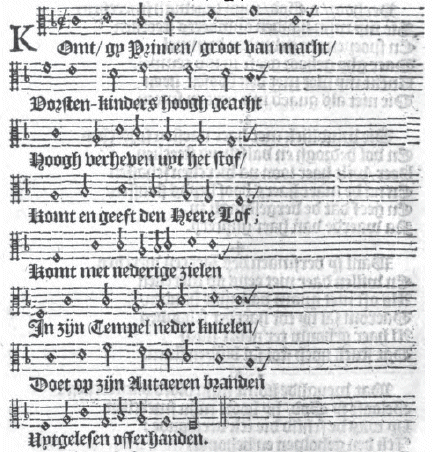 Komt/ gy Princen/ groot van macht/
Vorsten-kinders hoogh geacht
Hoogh verheven uyt het stof/
Komt en geeft den Heere Lof;
Komt met nederige zielen
In zijn Tempel neder knielen/
Doet op zijn Autaeren branden
Uytgelesen offerhanden.